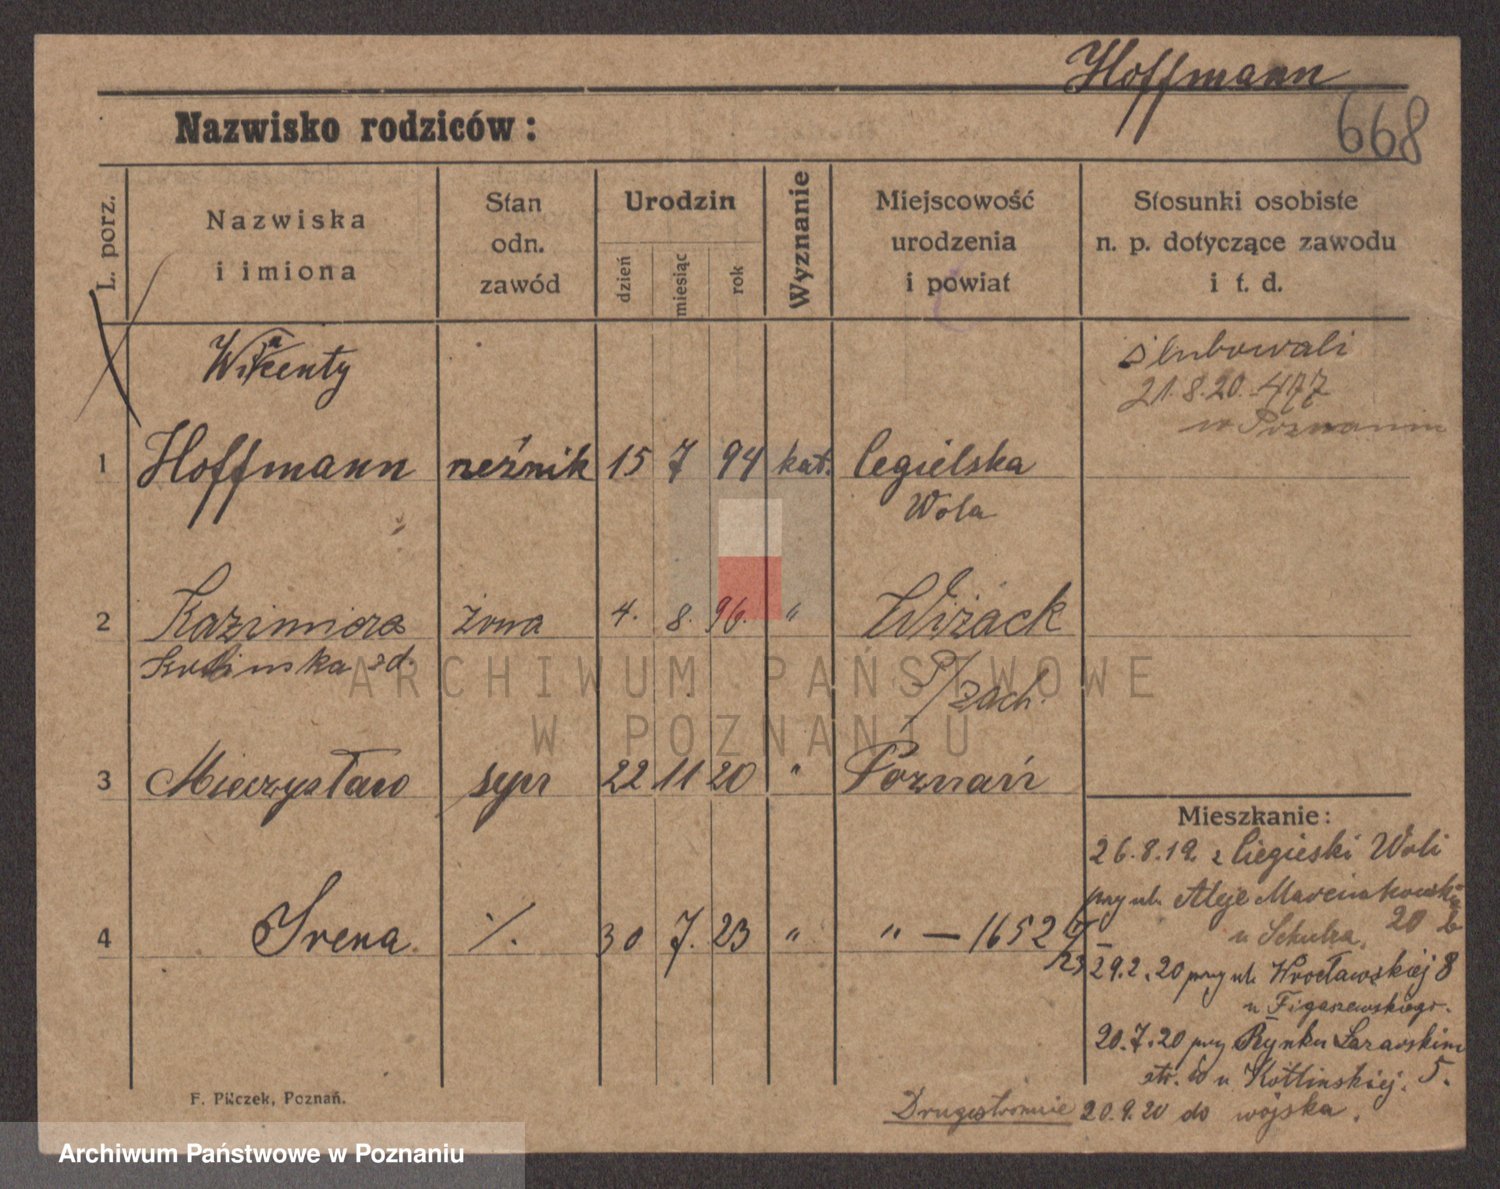 Hoffmann
668
Nazwisko rodziców:
L. porz.
Nazwiska
i imiona
Stan
odn.
zawód
Urodzin
dzień
miesiąc
rok
Wyznanie
Miejscowość
urodzenia
i powiat
Stosunki osobiste
n. p. dotyczące zawodu
i t. d.
ślubowali
21.8.20. 477
w Poznaniu
1 Hoffmann rzeźnik 15 7 94 kat. Cegielska
Wola
2 Kazimiera żona 4. 8. 96. "
zach.
3 Mieczysław syn 22 11 20 " Poznań
Mieszkanie:
26.8.19. z Ciegielski Woli
przy ul. Aleje Marcinkowsk
20
4 Irena ./. 30 7. 23 " " — 1652
23
29.2.20 przy ul. Wrocławskiej 8
u Figaszewskiego.
20.7.20 przy Rynku Łazarskim
5.
u Kotlinskiej.
F. Pilczek, Poznań.
Drugostronnie 20.9.20 do wojska.
ARCHIWUM PAŃSTWOWE
W POZNANIU
Archiwum Państwowe w Poznaniu